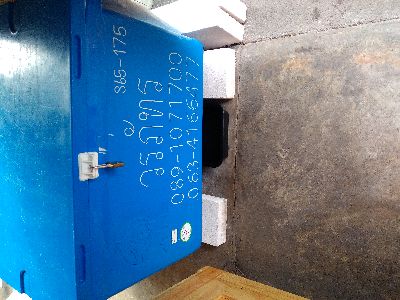 865-175
วรภัทร
089-1071700
063-4166477